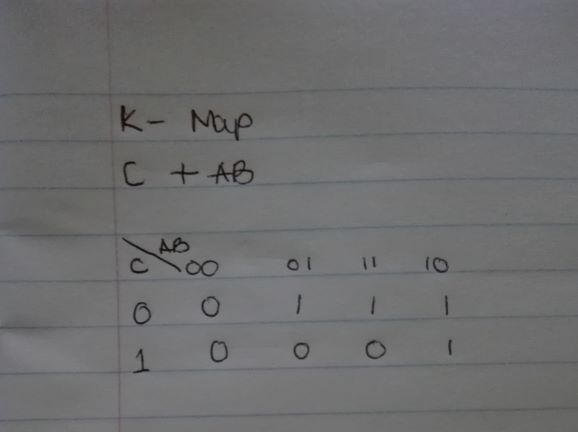 K - Map
C + AB
C \ AB 00 01 11 10
0 0 1 1 1
1 0 0 0 1